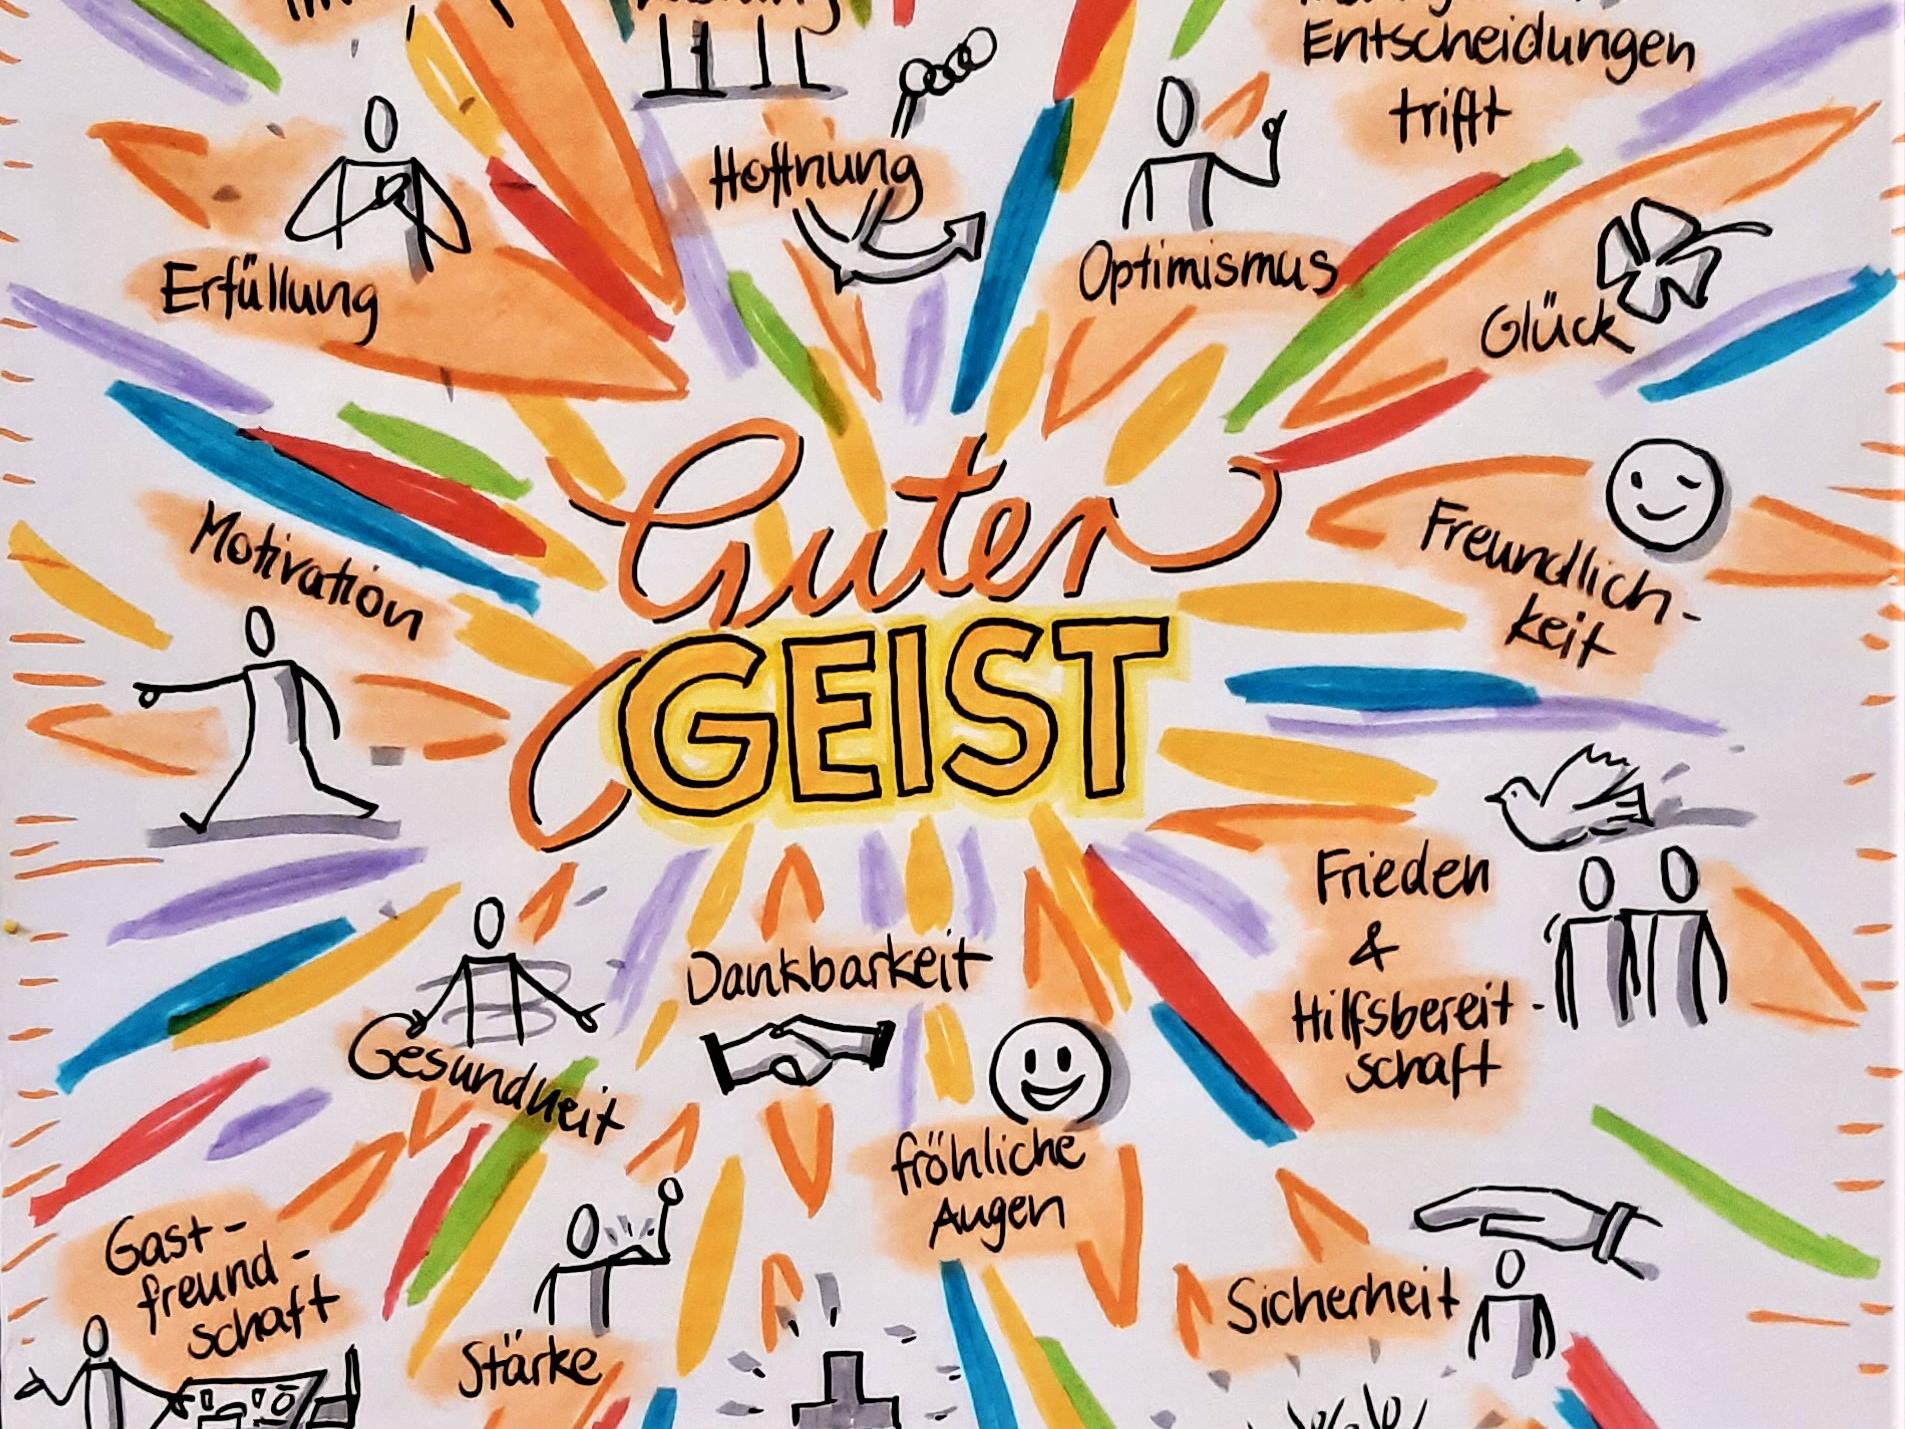 Entscheidungen
trifft
Hoffnung
Erfüllung
Optimismus
Glück
Guter
GEIST
Motivation
Freundlich-
keit
Frieden
&
Hilfsbereit-
schaft
Dankbarkeit
Gesundheit
fröhliche
Augen
Gast-
freund-
schaft
Stärke
Sicherheit